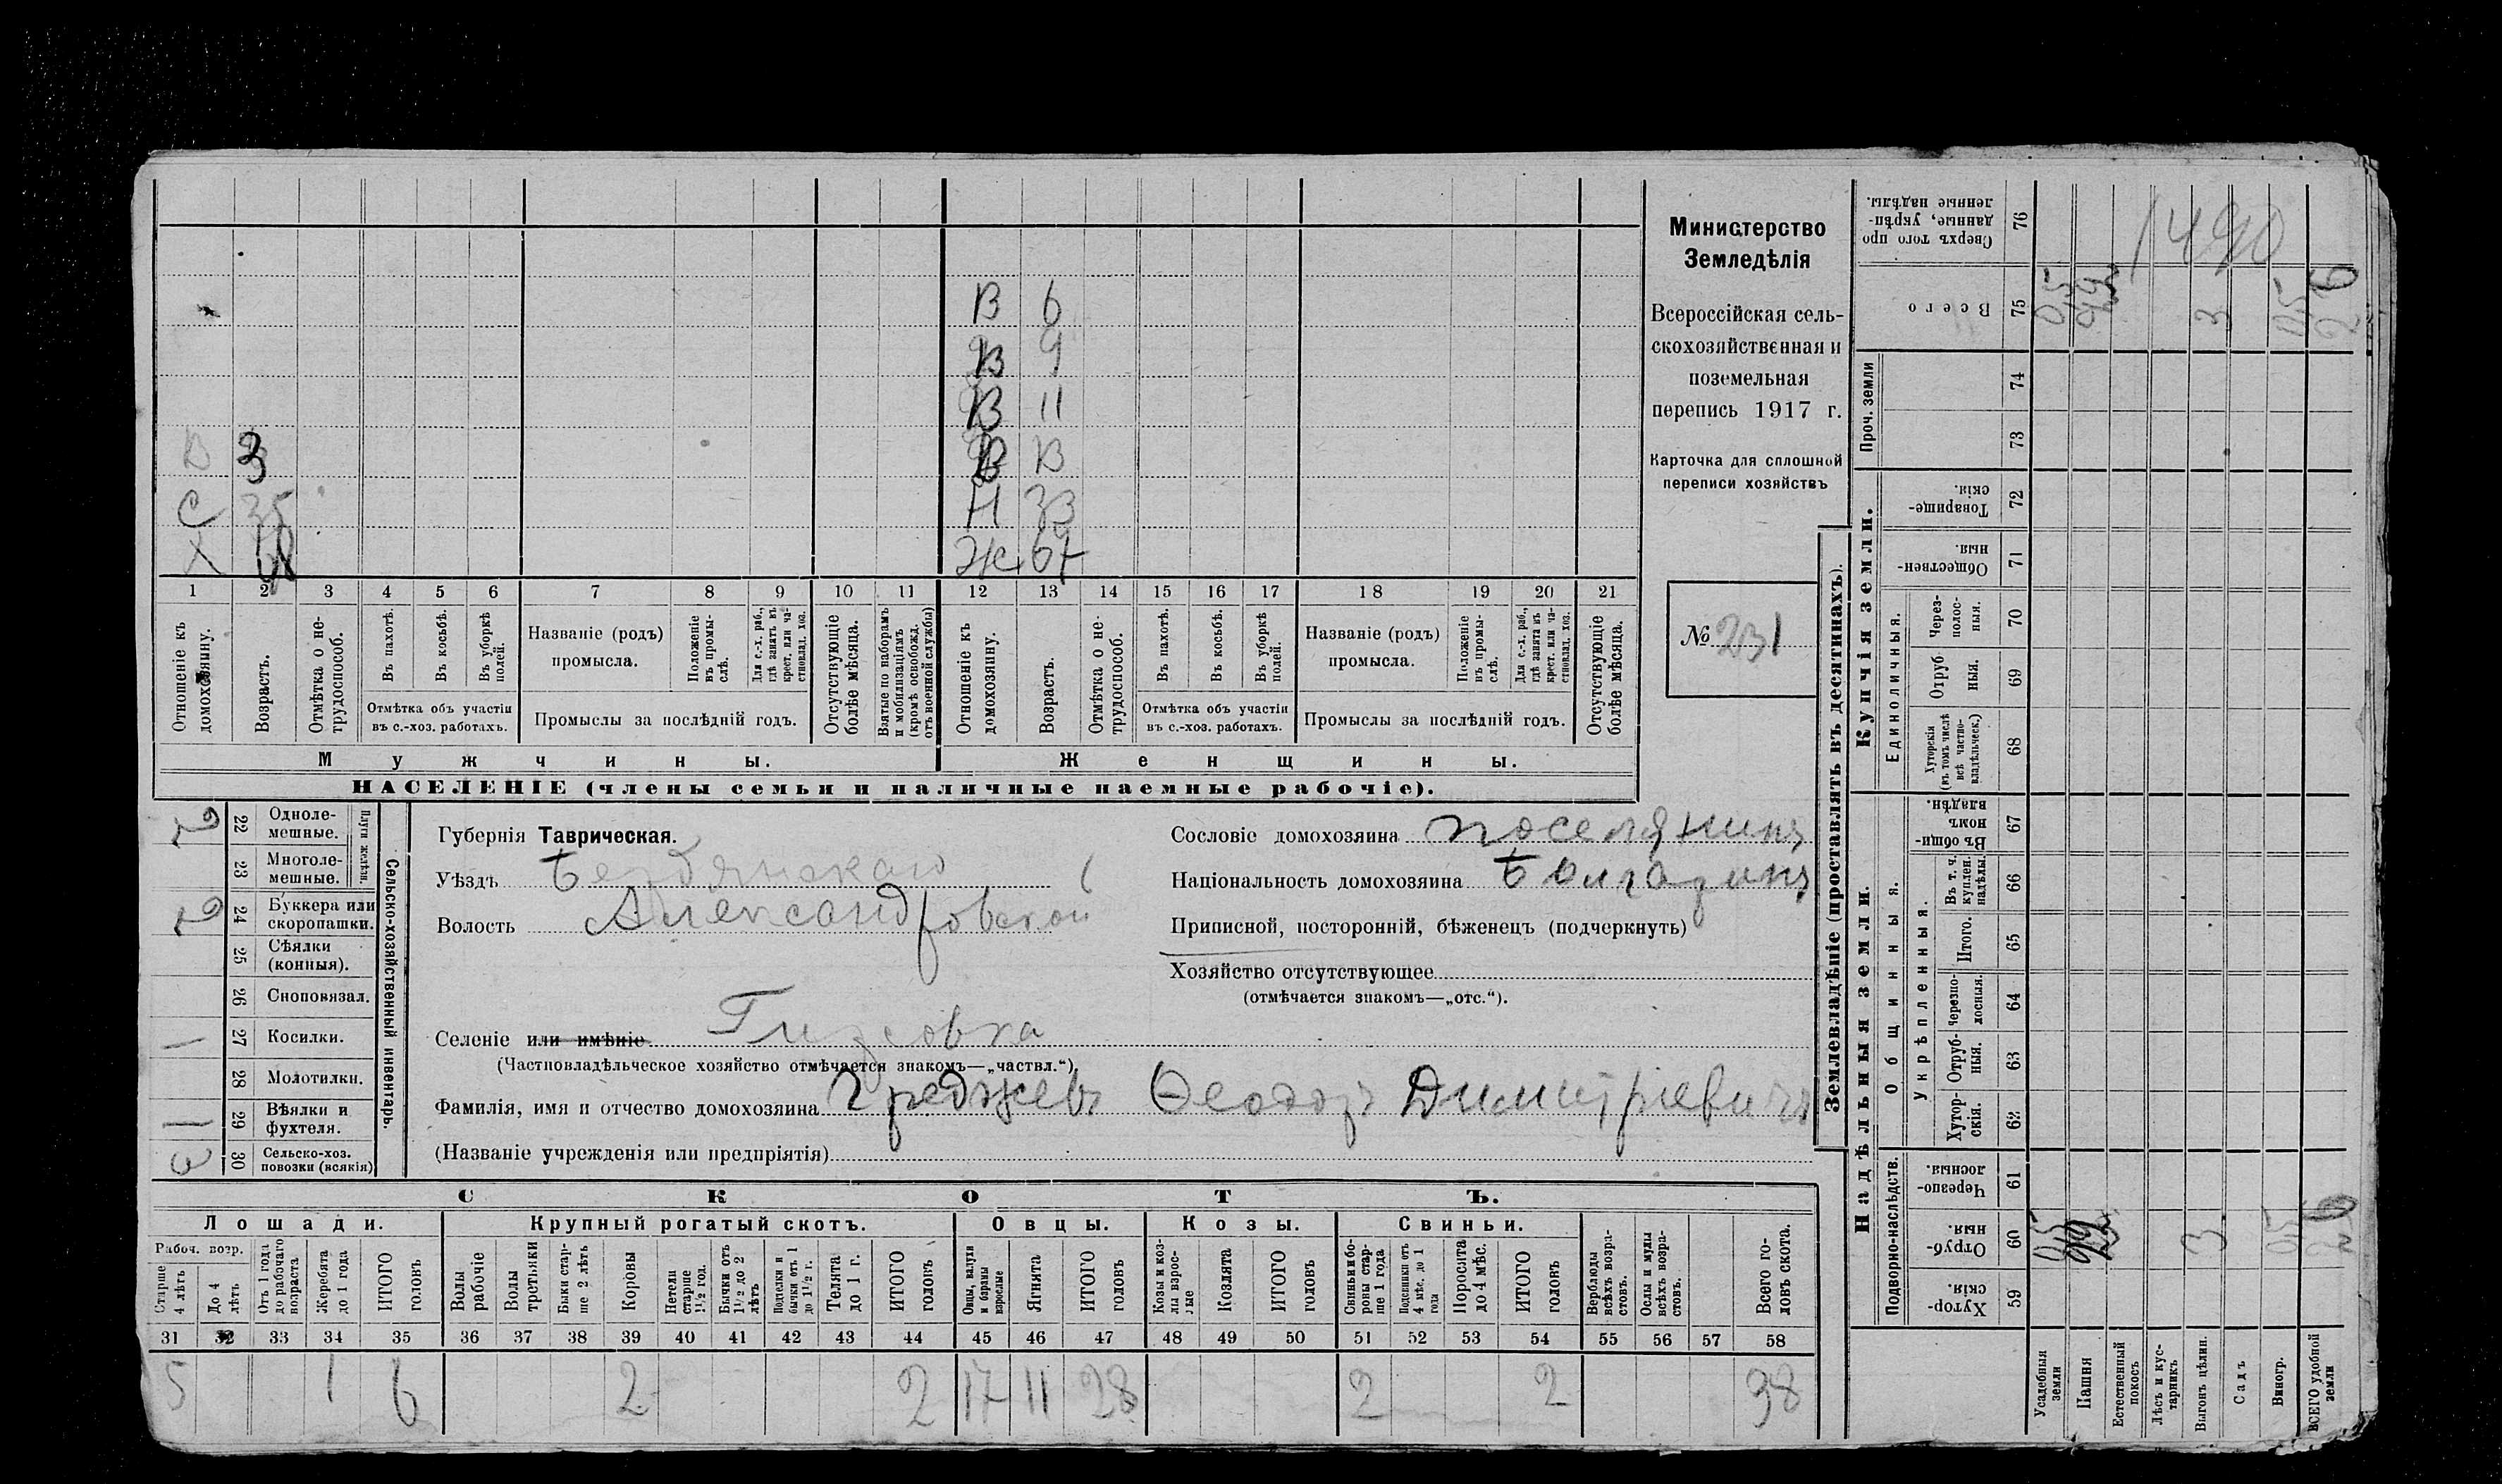 Министерство
Земледѣлія
Всероссійская сель-
скохозяйственная и
поземельная
перепись 1917 г.
Карточка для сплошной
переписи хозяйствъ
№ 231
В 6
В 9
В 11
В 3 В В
С 35 Н 33
Х Ж 67
1 2 3 4 5 6 7 8 9 10 11 12 13 14 15 16 17 18 19 20 21
Отношеніе къ домохозяину.
Возрастъ.
Отмѣтка о не-трудоспособ.
Въ пахотѣ.
Въ косьбѣ.
Въ уборкѣ полей.
Отмѣтка объ участіи
въ с.-хоз. работахъ.
Названіе (родъ)
промысла.
Положеніе въ промы-слѣ.
Для с.-х. раб., гдѣ занятъ въ крест. или ча-стновлад. хоз.
Промыслы за послѣдній годъ.
Отсутствующіе болѣе мѣсяца.
Взятые по наборамъ и мобилизаціямъ (кромѣ освобожд. отъ военной службы)
Отношеніе къ домохозяину.
Возрастъ.
Отмѣтка о не-трудоспособ.
Въ пахотѣ.
Въ косьбѣ.
Въ уборкѣ полей.
Отмѣтка объ участіи
въ с.-хоз. работахъ.
Названіе (родъ)
промысла.
Положеніе въ промы-слѣ.
Для с.-х. раб., гдѣ занята въ крест. или ча-стновлад. хоз.
Промыслы за послѣдній годъ.
Отсутствующіе болѣе мѣсяца.
Мужчины. Женщины.
НАСЕЛЕНІЕ (члены семьи и наличные наемные рабочіе).
Сельско-хозяйственный инвентарь.
Плуги желѣзн.
22 Одноле-мешные.
23 Многоле-мешные.
24 Буккера или скоропашки.
25 Сѣялки (конныя).
26 Сноповязал.
1 27 Косилки.
28 Молотилки.
1 29 Вѣялки и фухтеля.
3 30 Сельско-хоз. повозки (всякія)
Губернія Таврическая.
Уѣздъ Бердянскаго
Волость Александровской
Селеніе или имѣніе
(Частновладѣльческое хозяйство отмѣчается знакомъ—„частвл.“).
Фамилія, имя и отчество домохозяина Греджевъ Ѳеодоръ Димитріевичъ
(Названіе учрежденія или предпріятія)
Сословіе домохозяина поселянинъ
Національность домохозяина Болгаринъ
Приписной, посторонній, бѣженецъ (подчеркнуть)
Хозяйство отсутствующее
(отмѣчается знакомъ—„отс.“).
СКОТЪ.
Лошади. Крупный рогатый скотъ. Овцы. Козы. Свиньи.
Рабоч. возр.
Старше 4 лѣтъ
До 4 лѣтъ
Отъ 1 года до рабочаго возраста
Жеребята до 1 года
ИТОГО головъ
Волы рабочіе
Волы третьяки
Быки стар-ше 2 лѣтъ
Коровы
Нетели старше 1½ год.
Бычки отъ 1½ до 2 лѣтъ
Подтелки и бычки отъ 1 до 1½ г.
Телята до 1 г.
ИТОГО головъ
Овцы, валухи и бараны взрослые
Ягнята
ИТОГО головъ
Козы и коз-лы взрос-лые
Козлята
ИТОГО головъ
Свиньи и бо-ровы стар-ше 1 года
Подсвинки отъ 4 мѣс. до 1 года
Поросята до 4 мѣс.
ИТОГО головъ
Верблюды всѣхъ возра-стовъ.
Ослы и мулы всѣхъ возра-стовъ.
Всего го-ловъ скота.
31 32 33 34 35 36 37 38 39 40 41 42 43 44 45 46 47 48 49 50 51 52 53 54 55 56 57 58
5 1 6 2 2 17 11 28 2 2 38
Землевладѣніе (проставлять въ десятинахъ).
1490
Сверхъ того про-данные, укрѣп-ленные надѣлы. 76
Всего 75 3 26
Проч. земли 74
73
Купчія земли.
Товарище-скія. 72
Обществен-ныя. 71
Единоличныя.
Через-полос-ныя. 70
Отруб-ныя. 69
Хуторскія (въ томъ числѣ всѣ частно-владѣльческ.) 68
Надѣльныя земли.
Общинныя.
Въ общи-номъ владѣн. 67
Укрѣпленныя.
Въ т. ч. куплен. надѣлы. 66
Итого. 65
Черезпо-лосныя. 64
Отруб-ныя. 63
Хутор-скія. 62
Подворно-наслѣдств.
Черезпо-лосныя. 61
Отруб-ныя. 60 3 26
Хутор-скія. 59
Усадебныя земли
Пашня
Естественный покосъ
Лѣсъ и кус-тарникъ
Выгонъ цѣлин.
Садъ
Виногр.
ВСЕГО удобной земли